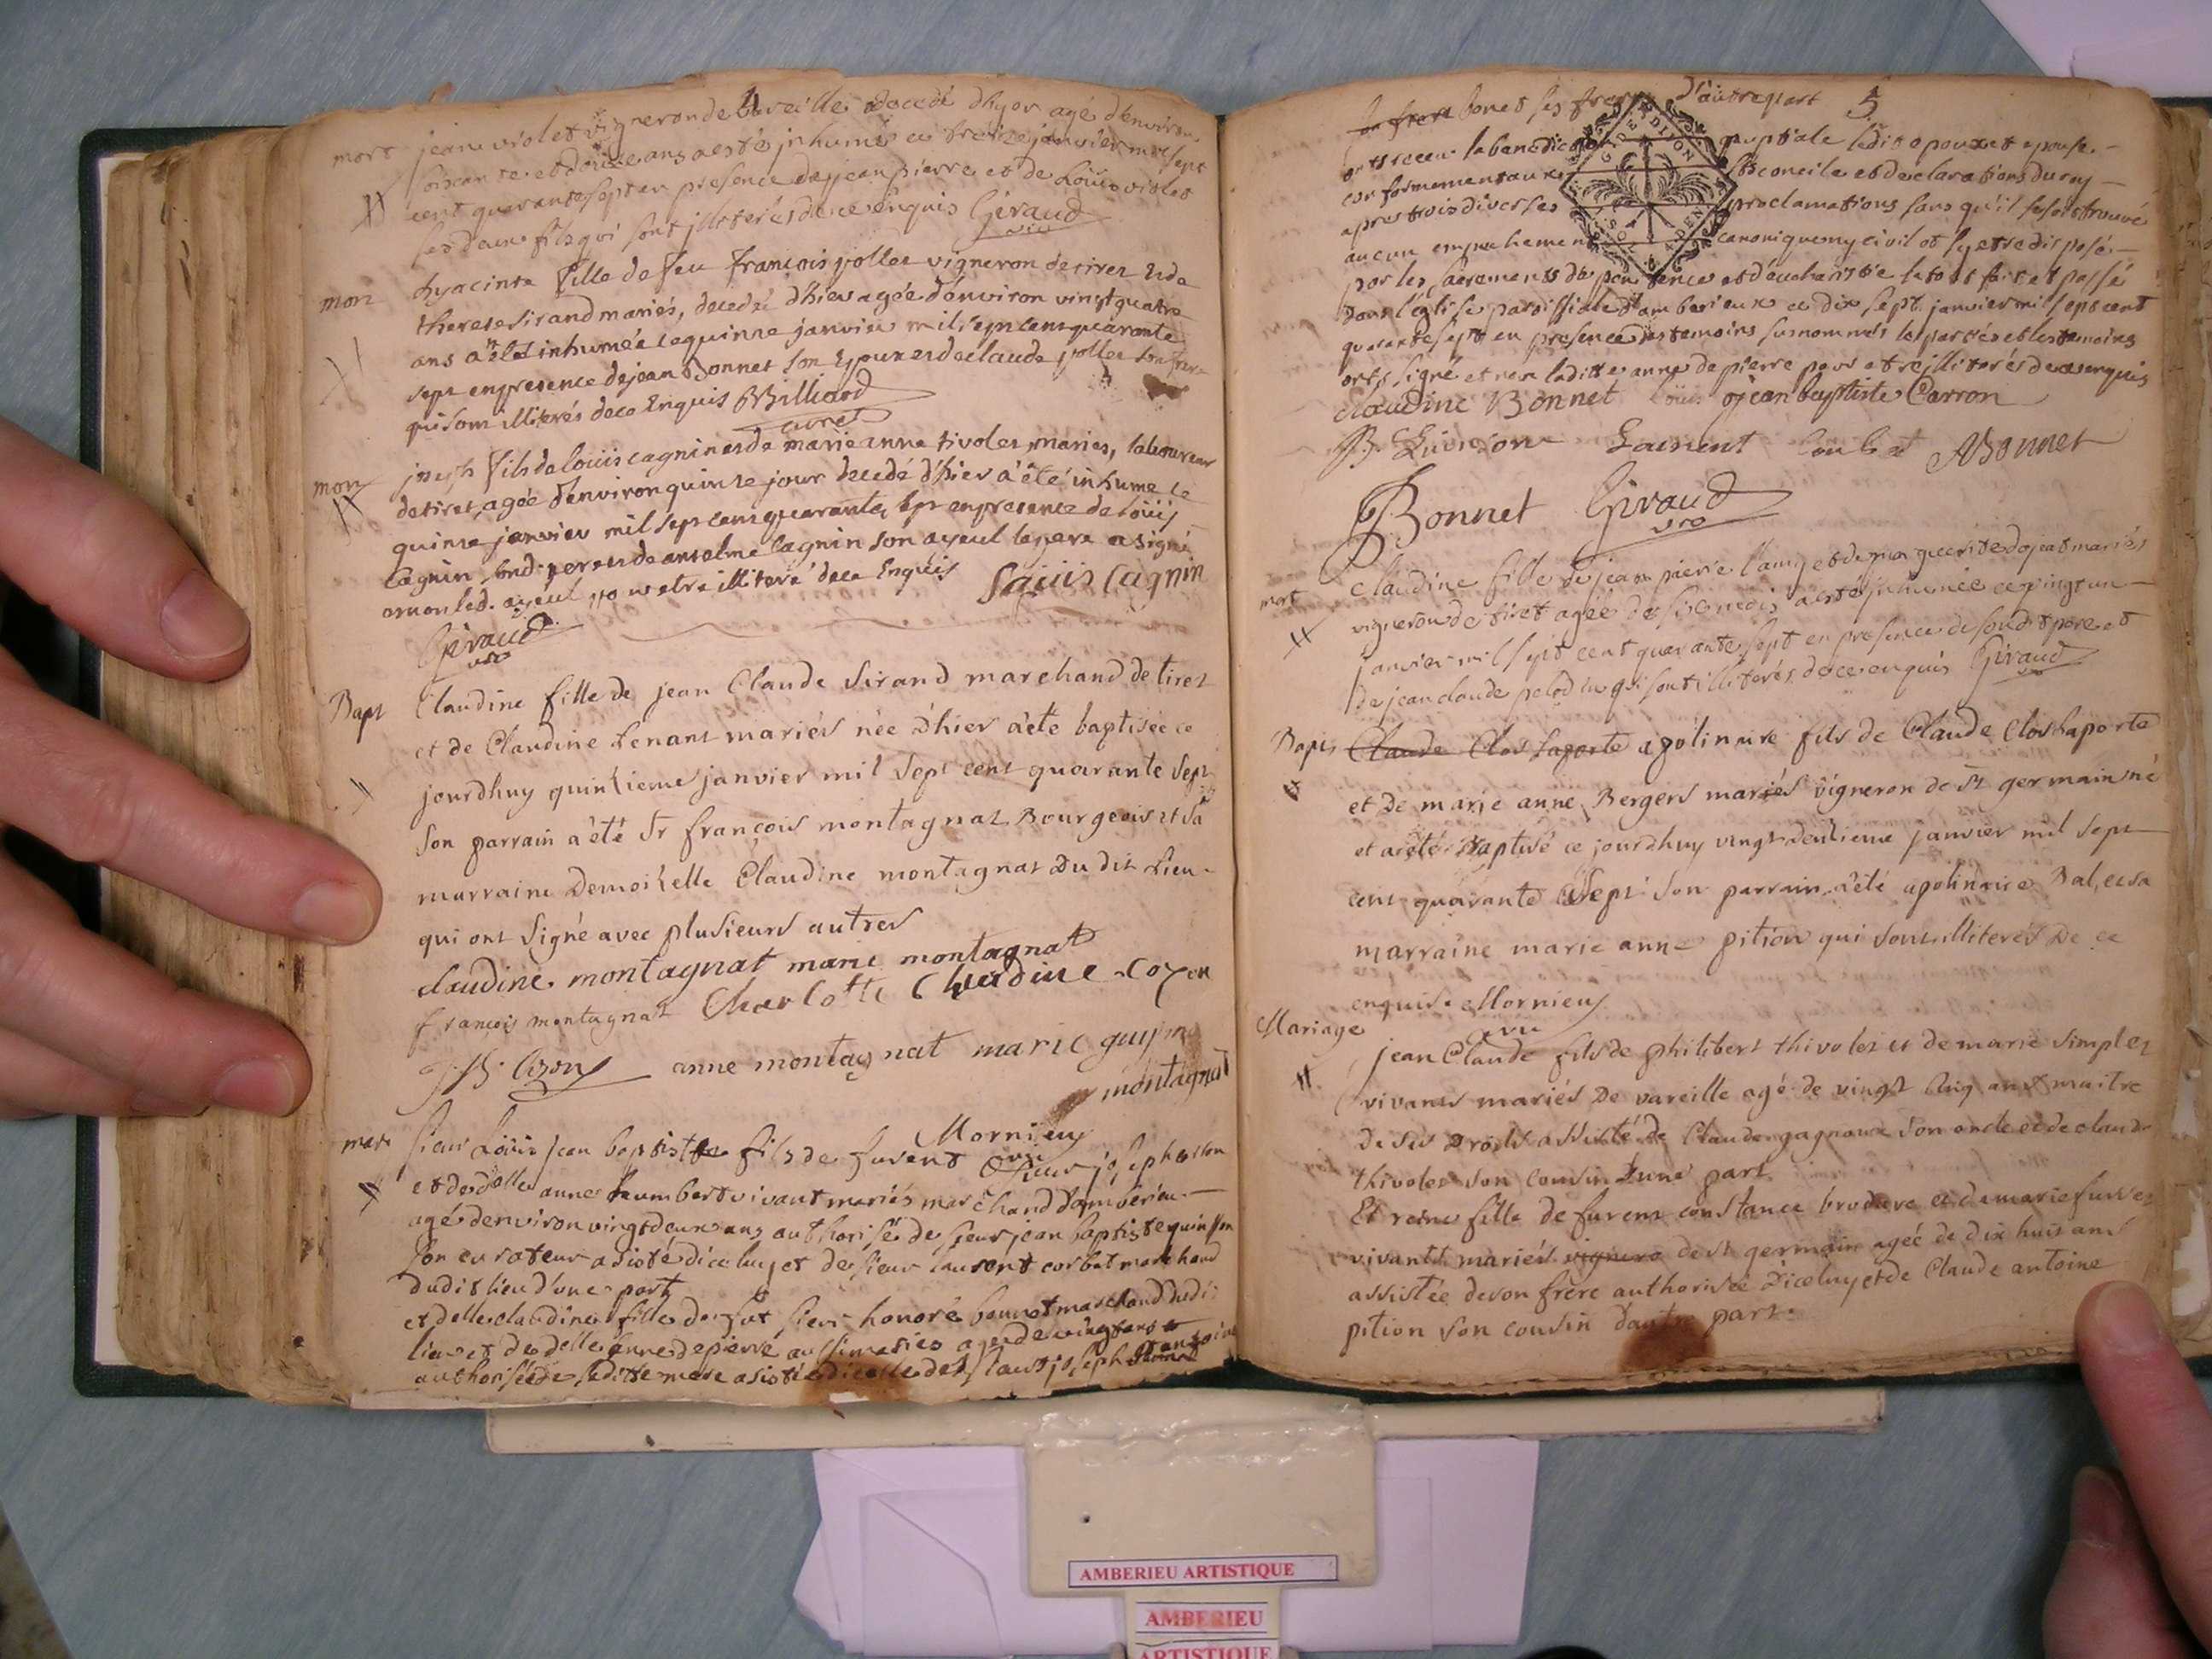 4
mort jean violet vigneron de vareille decedé dhyer agé denviron
soixante et douze ans a esté inhumé ce treize janvier mil sept
cent quarante sept en presence de jean pierre et de Loüis violet
ses deux fils qui sont illiterés de ce enquis Giraud
vic
mort hyacinte fille de feu françois jollet vigneron de tiret et de
therese Sirand mariés, decedée d'hier agée d'environ vingt quatre
ans a été inhumée ce quinze janvier mil sept cens quarante
sept en presence de jean Bonnet son Epoux et de claude jollet son frere
qui som illiterés de ce Enquis Billiard
curé
mort joseph fils de loüis cagnin et de marie anne tivolet mariés, laboureur
de tiret, agée d'environ quinze jour decedé d'hier a été inhumé le
quinze janvier mil sept cens quarante sept en presence de loüis
Cagnin sud. pere et de anselme Cagnin son ayeul le pere a signé
et non led. ayeul pour etre illiteré de ce Enquis Louis Cagnin
Giraud
vic
Bapt Claudine fille de jean Claude Sirand marchand de tiret
et de Claudine Tenant mariés née d'hier a été baptisée ce
jourdhuy quinzieme janvier mil sept cent quarante sept
Son parrain a été Sr françois montagnat Bourgeois et sa
marraine Demoizelle Claudine montagnat Du dit Lieu
qui ont signé avec plusieurs autres
claudine montagnat marie montagnat
françois montagnat Charlotte Claudine
anne montagnat marie
montagnat
Mornieu
vic
mari Sieur Loüis jean baptiste fils de furent Sieur joseph
et de delle anne humbert vivant mariés marchand damberieu
agé denviron vingt deux ans authorisé de sieur jean baptiste quinson
son curateur asisté diceluy et de sieur laurent corbet marchand
dudit lieu d'une part
et delle claudine fille de fut sieur honoré bonnet marchand dudit
lieu et de delle anne depierre aussi mariés agée de vingt ans
authorisée de laditte mere asistée dicelle de joseph
d'autre part 5
bonet ses freres
ont receu la benediction nuptiale ledit epoux et epouse
conformement aux sts concile et declarations du roy
apres trois diverses proclamations sans qu'il se soit trouvé
aucun empechement canonique ny civil et s'y etre disposé
par les sacrements de penitence et d'eucharistie le tout fait et passé
dans l'église paroissiale d'amberieux ce dix sept janvier mil sept cent
quarante sept en presence des temoins susnommés les parties et les temoins
ont signé et non laditte anne depierre pour etre illiterés de ce enquis
claudine Bonnet jean baptiste Carron
Laurent ABonnet
Bonnet Giraud
vic
mort Claudine fille de jean pierre et de marguerite mariés
vigneron de tiret agée de six mois a esté inhumée ce vingt un
janvier mil sept cent quarante sept en presence de sondt pere et
de jean claude qui sont illiterés de ce enquis Giraud
Bapts Claude Clos Laporte apolinaire fils de Claude Clos Laporte
et de marie anne Bergers mariés vigneron de St germain né
et a été Baptisé ce jourdhuy vingt deuzieme janvier mil sept
cent quarante sept son parrain a été apolinaire Bal, et sa
marraine marie anne pition qui sont illiterés De ce
enquis Mornieu
vic
Mariage jean Claude fils de philibert thivolet et de marie Simplet
vivants mariés De vareille agé de vingt cinq ans maitre
de ses Droits assisté de Claude gagneux son oncle et de claude
thivolet son cousin Dune part
Et reine fille de furent constance brodere et de marie fusset
vivants mariés vignero de st germain agée de dix huit ans
assistée de son frere authorisée diceluy et de Claude antoine
pition son cousin dautre part.
AMBERIEU ARTISTIQUE
AMBERIEU
ARTISTIQUE